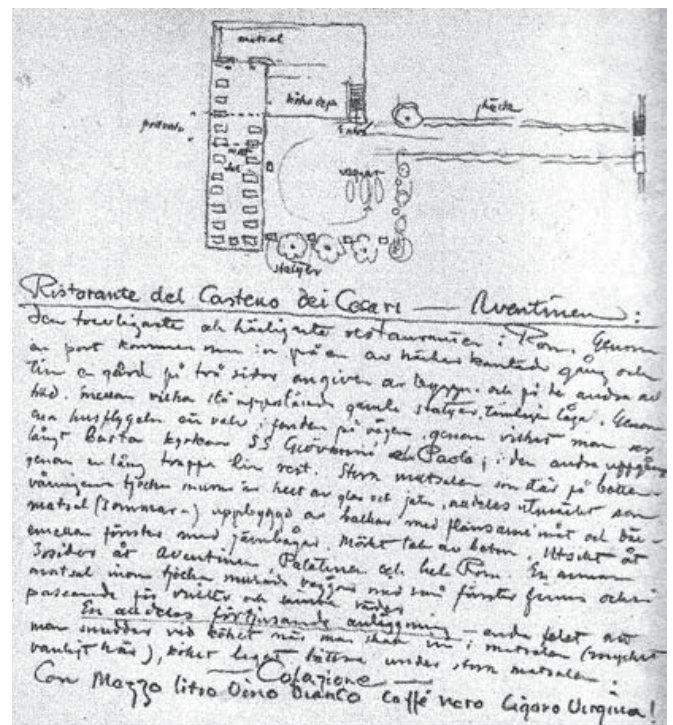 matsal
häck
Entré
mat
sal
vagnar
statyer
Ristorante del Castello dei Cesari — Aventinen :
den trevligaste och härligaste restauranten i Rom. Genom
en port kommer man in på en av häckar kantad gång och
till en gård på två sidor angiven av byggn. och på de andra av
träd. mellan vilka stå uppställda gamla statyer, Genom
ena husflygeln en valv i fonden på vägen, genom vilket man ser
långt bort kyrkan SS Giovanni e Paolo; i den andra uppgång
genom en lång trappa till rest. Stora matsalen som där på botten-
våningens tjocka murar är helt av glas och järn, alldeles utmärkt som
matsal (sommar-) uppbyggd av balkar med och där-
emellan fönster med järnbågar. Mörkt tak av betong. Utsikt åt
3 sidor åt Aventinen, Palatinen och hela Rom. En annan
matsal inom tjocka murade väggar med små fönster finns också
passande för vinter och sämre väder.
En alldeles förtjusande anläggning – enda felet att
man snuddar vid köket när man skall in i matsalen (mycket
vanligt här), köket ligger bättre under stora matsalen.
— Colazione —
Con Mezzo litro Vino Bianco Caffé nero Cigaro Virginia!